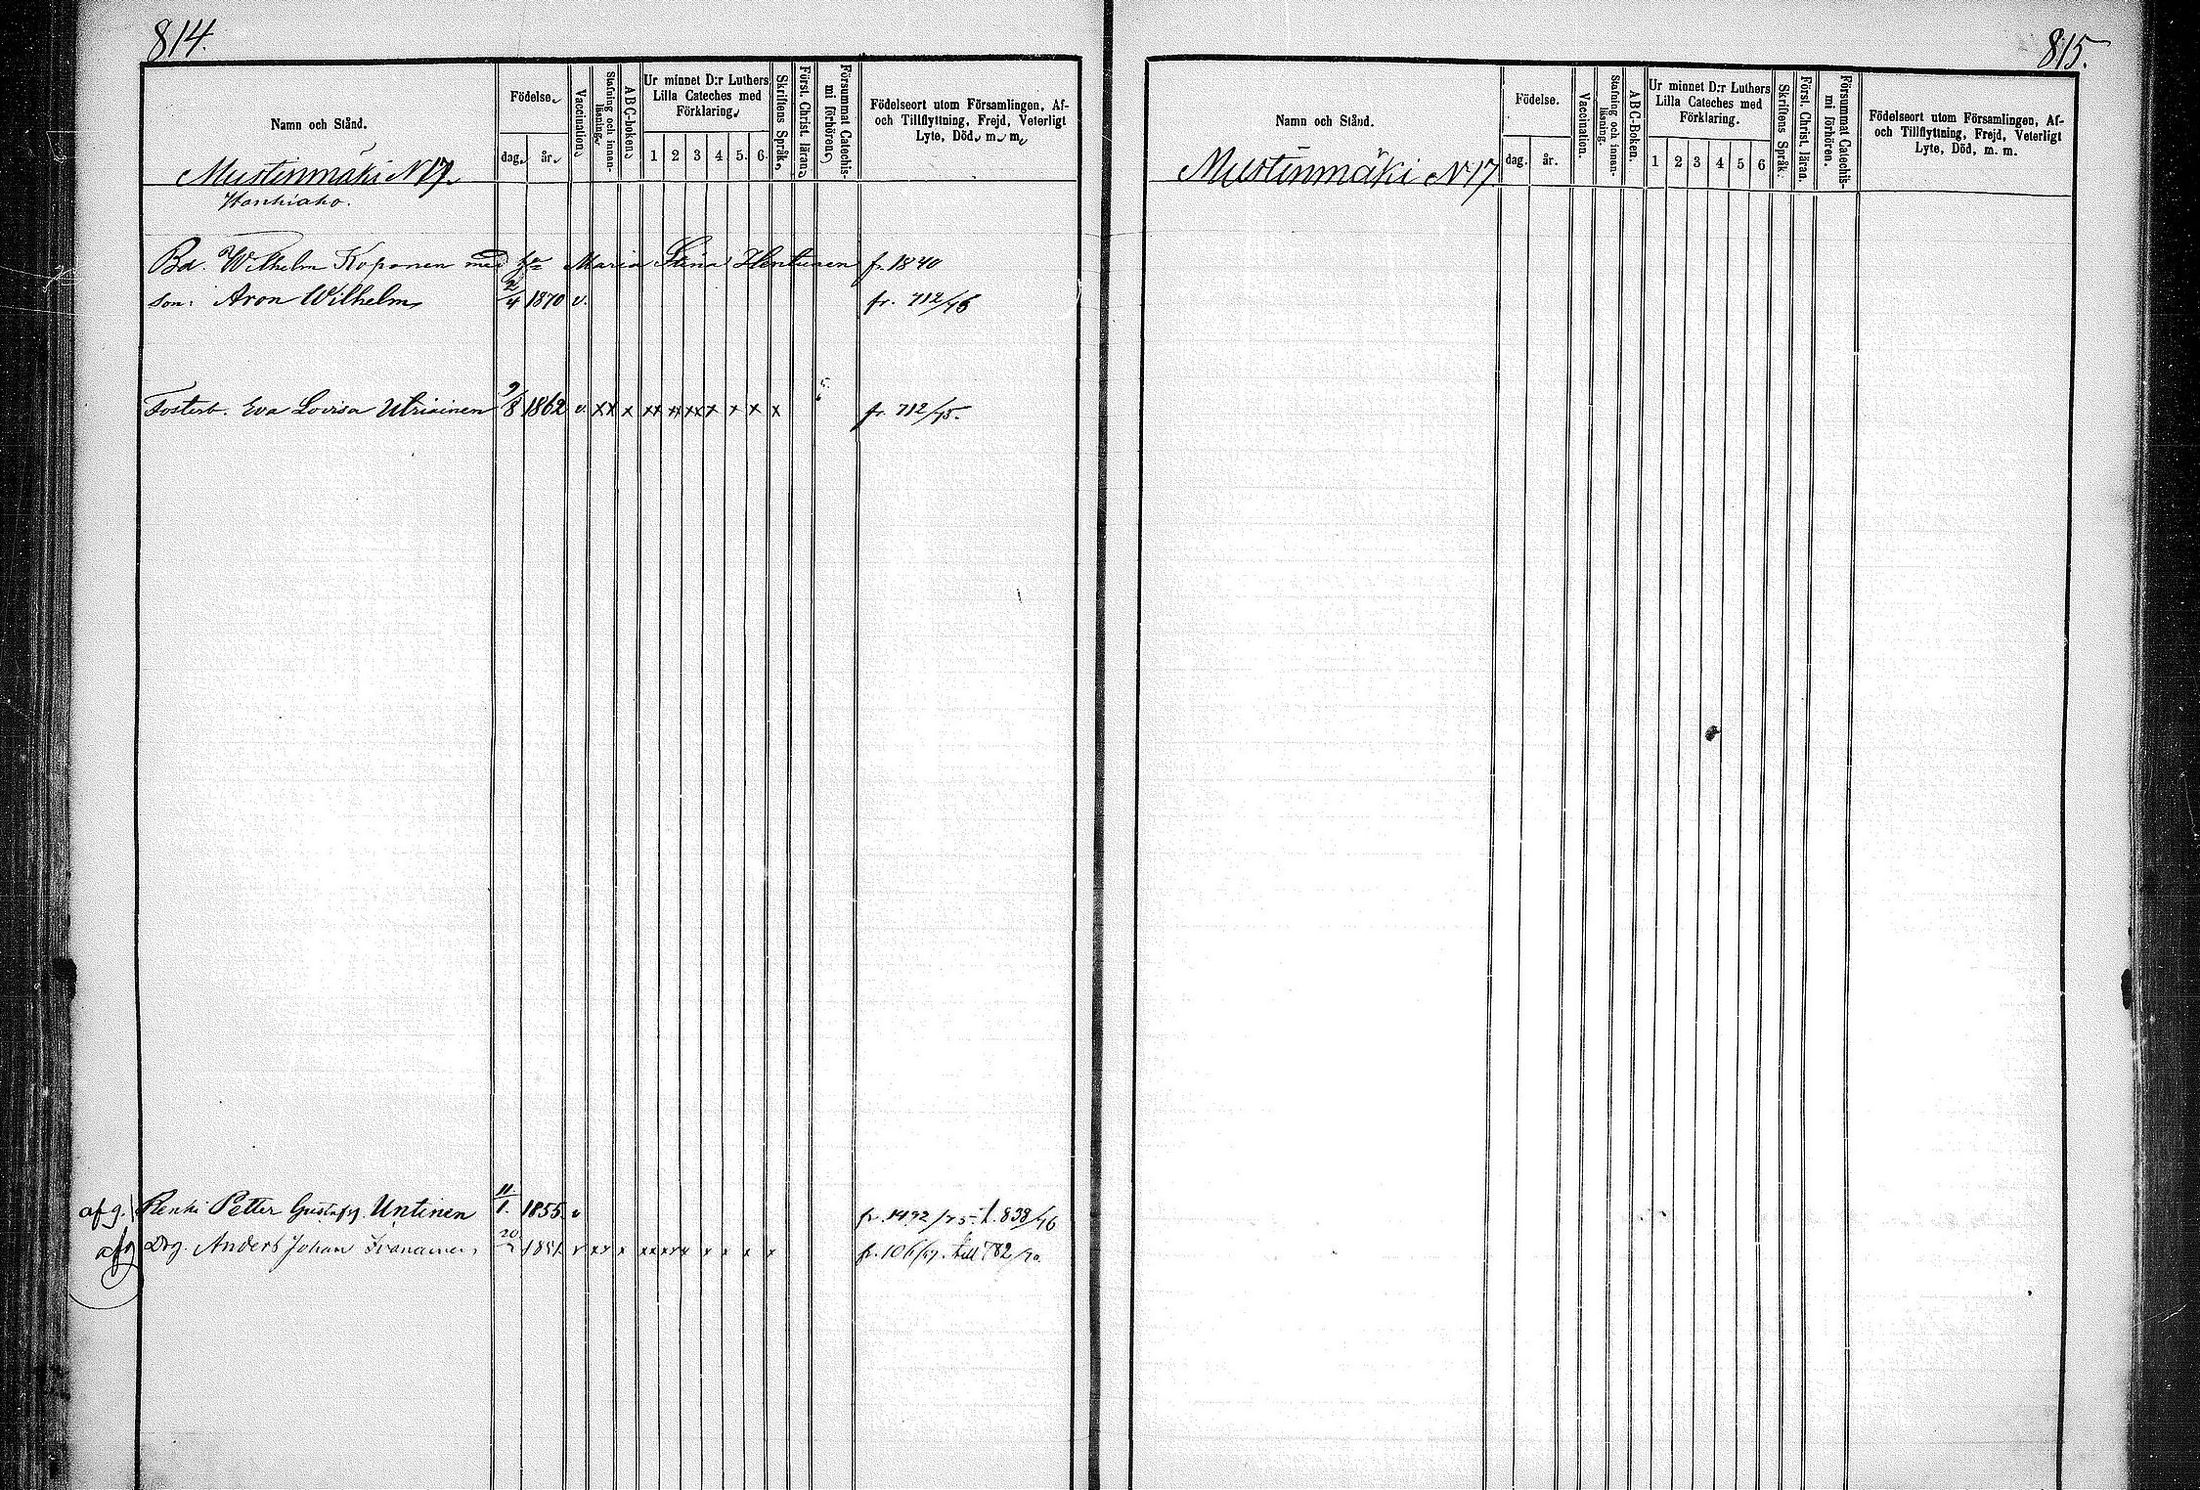 814.
Namn och Stånd.
Födelse.
dag. år.
Vaccination.
Stafning och innan-läsning.
ABC-boken.
Ur minnet D:r Luthers
Lilla Cateches med
Förklaring.
1 2 3 4 5. 6.
Skriftens Språk.
Först. Christ. läran.
Försummat Catechis-
mi förhören.
Födelseort utom Församlingen, Af-
och Tillflyttning, Frejd, Veterligt
Lyte, Död. m. m.
Mustinmäki N 17.
Bd. Wilhelm Koponen med Maria Stina Hentunen fr. 1840
Son: Aron Wilhelm 2/4 1870 v. fr. 712/76
Fosterb. Eva Lovisa Utriainen 9/8 1862 v. xx x xx xx xx x x x x fr. 712/75.
afg. Renki Petter Gustaf Untinen 11/1. 1855. v fr. 1492/75. t. 838/76
afg Drg. Anders Johan 1851 v xx x fr. 106/ till 782/
815.
Namn och Stånd.
Födelse.
dag. år.
Vaccination.
Stafning och innan-
läsning.
ABC-Boken.
Ur minnet D:r Luthers
Lilla Cateches med
Förklaring.
1 2 3 4 5 6
Skriftens Språk.
Först. Christ. läran.
Försummat Catechis-
mi förhören.
Födelseort utom Församlingen, Af-
och Tillflyttning, Frejd, Veterligt
Lyte, Död, m. m.
Mustinmäki N 17